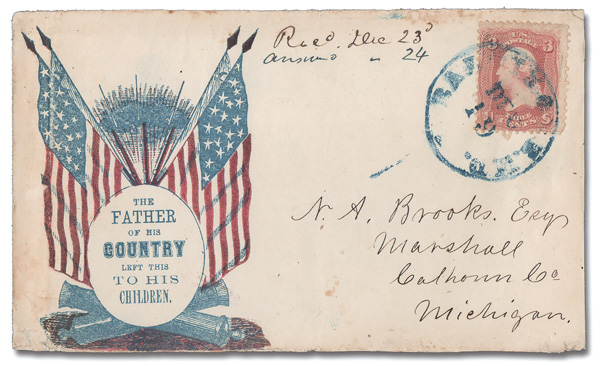 Recd. Dec 23d
ansd " 24
U.S. POSTAGE
3
CENTS
DEC
19
THE
FATHER
OF HIS
COUNTRY
LEFT THIS
TO HIS
CHILDREN.
N. A. Brooks. Esq
Marshall
Calhoun Co
Michigan.